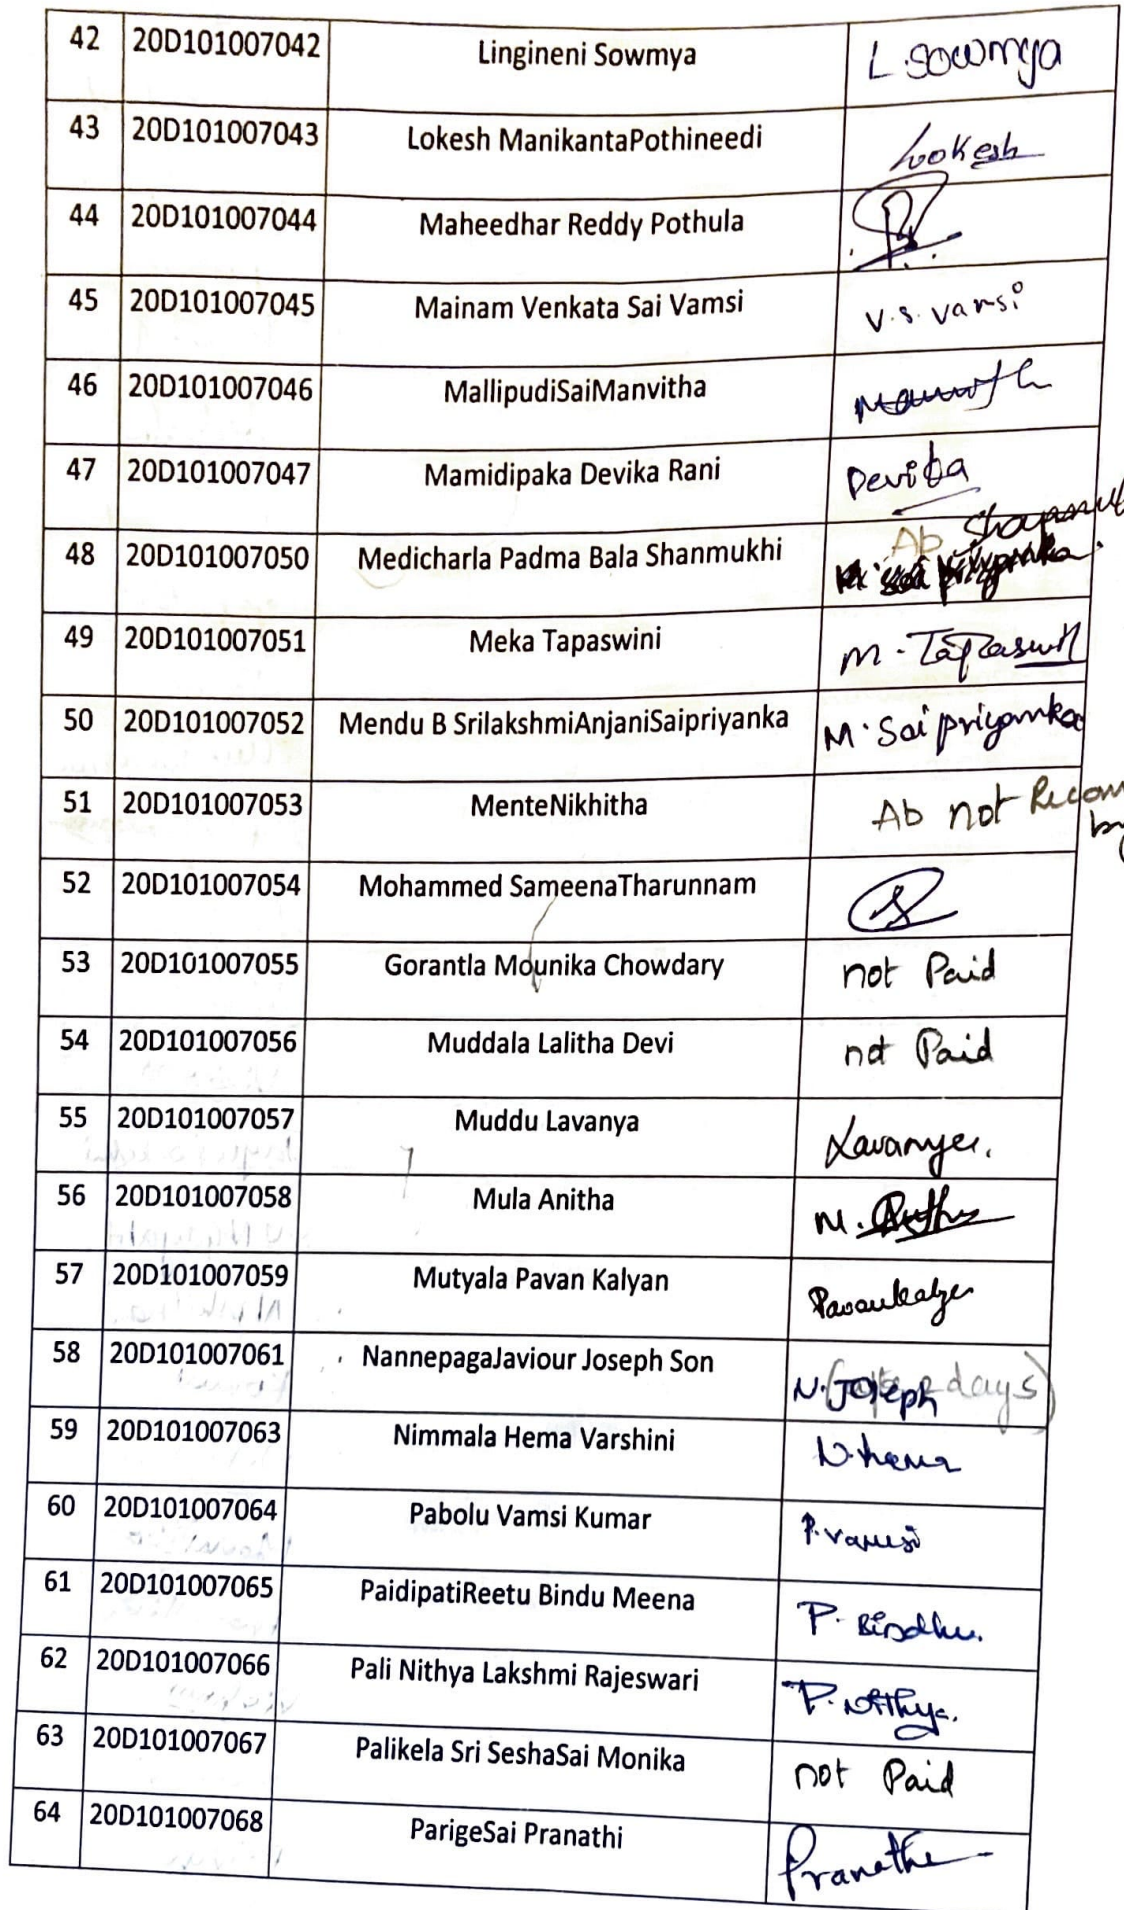 42 20D101007042 Lingineni Sowmya L.Sowmya
43 20D101007043 Lokesh ManikantaPothineedi Lokesh
44 20D101007044 Maheedhar Reddy Pothula
45 20D101007045 Mainam Venkata Sai Vamsi V.S.Vamsi
46 20D101007046 MallipudiSaiManvitha
47 20D101007047 Mamidipaka Devika Rani Devika
48 20D101007050 Medicharla Padma Bala Shanmukhi Ab
49 20D101007051 Meka Tapaswini M.Tapaswini
50 20D101007052 Mendu B SrilakshmiAnjaniSaipriyanka M.Saipriyanka
51 20D101007053 MenteNikhitha Ab not
52 20D101007054 Mohammed SameenaTharunnam
53 20D101007055 Gorantla Mounika Chowdary not Paid
54 20D101007056 Muddala Lalitha Devi not Paid
55 20D101007057 Muddu Lavanya Lavanya.
56 20D101007058 Mula Anitha M.
57 20D101007059 Mutyala Pavan Kalyan Pavankalyan
58 20D101007061 NannepagaJaviour Joseph Son N.Joseph days)
59 20D101007063 Nimmala Hema Varshini N.hema
60 20D101007064 Pabolu Vamsi Kumar P.vamsi
61 20D101007065 PaidipatiReetu Bindu Meena P.Bindhu.
62 20D101007066 Pali Nithya Lakshmi Rajeswari P.Nithya.
63 20D101007067 Palikela Sri SeshaSai Monika not Paid
64 20D101007068 ParigeSai Pranathi Pranathi